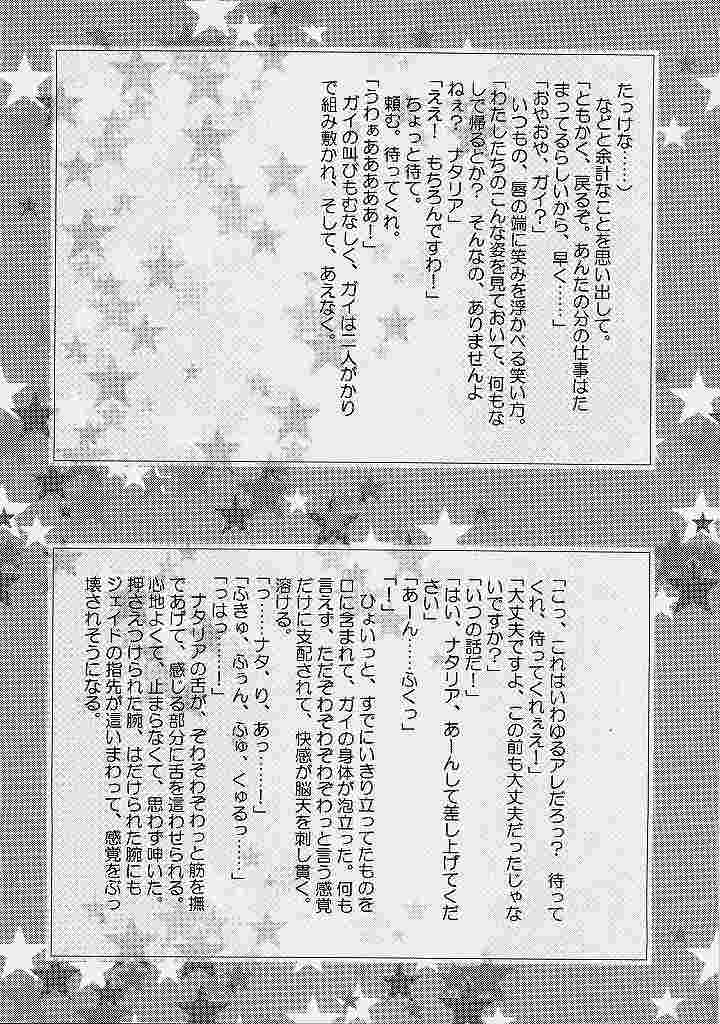 たっけな……)
などと余計なことを思い出して。
「ともかく、戻るぞ。あんたの分の仕事はた
まってるらしいから、早く……」
「おやおや、ガイ?」
いつもの、唇の端に笑みを浮かべる笑い方。
「わたしたちのこんな姿を見ておいて、何もな
しで帰るとか? そんなの、ありませんよ
ねぇ? ナタリア」
「ええ! もちろんですわ!」
ちょっと待て。
頼む。待ってくれ。
「うわぁあああああ!」
ガイの叫びもむなしく、ガイは二人がかり
で組み敷かれ、そして、あえなく。
「こっ、これはいわゆるアレだろっ? 待って
くれ、待ってくれぇえ!」
「大丈夫ですよ、この前も大丈夫だったじゃな
いですか?」
「いつの話だ!」
「はい、ナタリア、あーんして差し上げてくだ
さい」
「あーん……ふくっ」
「!」
ひょいっと、すでにいきり立ってたものを
口に含まれて、ガイの身体が泡立った。何も
言えず、ただぞわぞわぞわぞわっと言う感覚
だけに支配されて、快感が脳天を刺し貫く。
溶ける。
「っ……ナタ、り、あっ……!」
「ふきゅ、ふぅん、ふゅ、くゅるっ……」
「っはっ……!」
ナタリアの舌が、ぞわぞわぞわっと筋を撫
であげて、感じる部分に舌を這わせられる。
心地よくて、止まらなくて、思わず呻いた。
押さえつけられた腕、はだけられた腕にも
ジェイドの指先が這いまわって、感覚をぶっ
壊されそうになる。